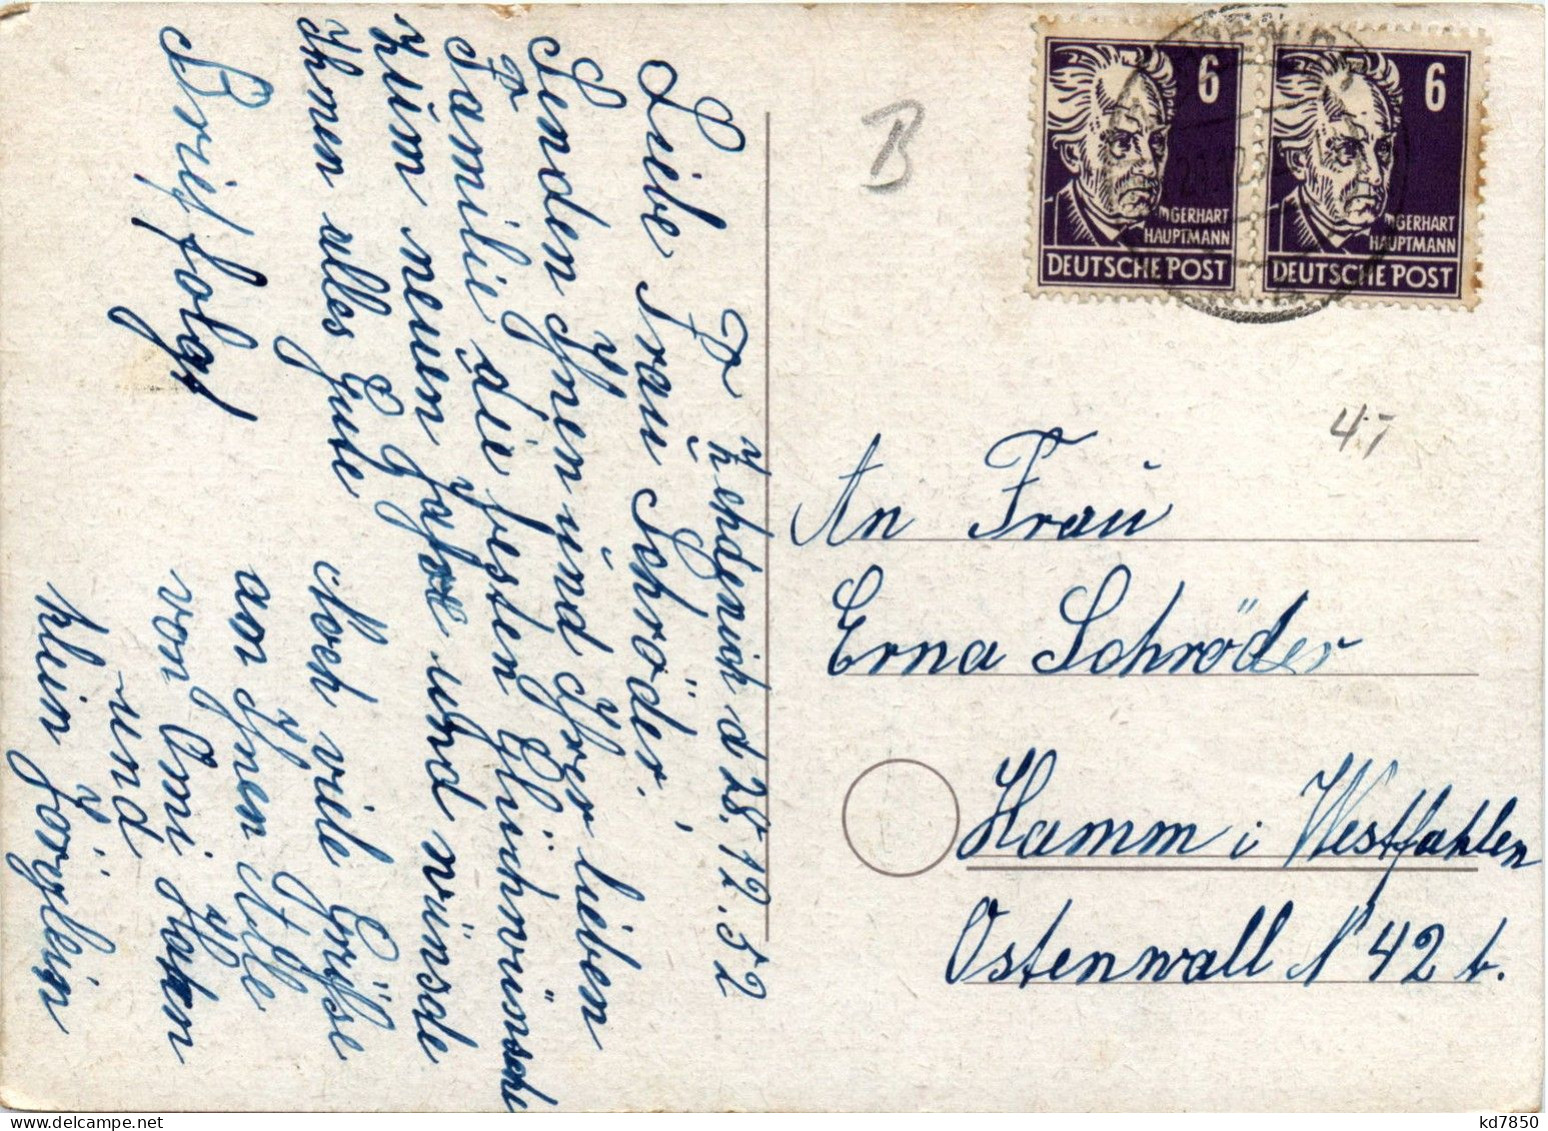 Zehdenick d 28.12.52
Liebe Frau Schröder!
Senden Ihnen und Ihrer lieben
Familie die besten Glückwünsche
zum neuen Jahre und wünsche
Ihnen alles Gute
Brief folgt
Noch viele Grüße
an Ihnen Alle
von Omi Haken
und
klein Jörglein
B
6
GERHART
HAUPTMANN
DEUTSCHE POST
6
GERHART
HAUPTMANN
DEUTSCHE POST
An Frau
Erna Schröder
Hamm i Westfahlen
Ostenwall N 42 b.
kd7850